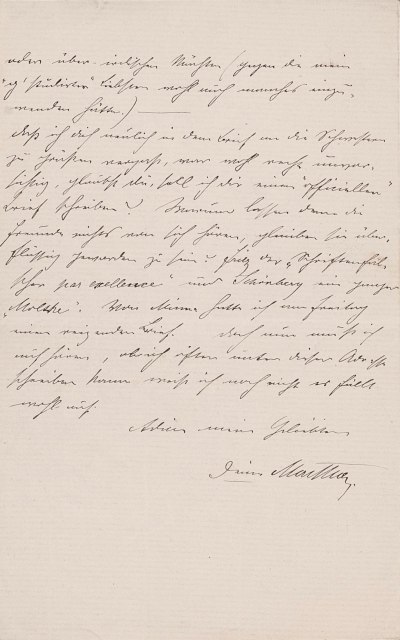 oder über irdischen Mächten (gegen die mein
"g'studirter" Liebster wohl auch manches einzu-
wenden hätte.) —
daß ich dich neulich in dem Brief an die Schwestern
zu grüßen vergaß, war wohl recht unver-
glaubst du, soll ich dir einen "officiellen"
Brief schreiben? Warum lassen denn die
Freunde nichts von sich hören, glauben sie über-
flüssig geworden zu sein? Fritz der "Schriftenfäl-
scher par exellence" und Schönberg ein junger
"Moltke". Von Minna hatte ich am Freitag
einen reizenden Brief. doch nun muß ich
auch hören, ob ich öfters unter dieser Adresse
schreiben kann weiß ich noch nicht es fällt
wohl auf.
Adieu mein Geliebter
Deine Martha